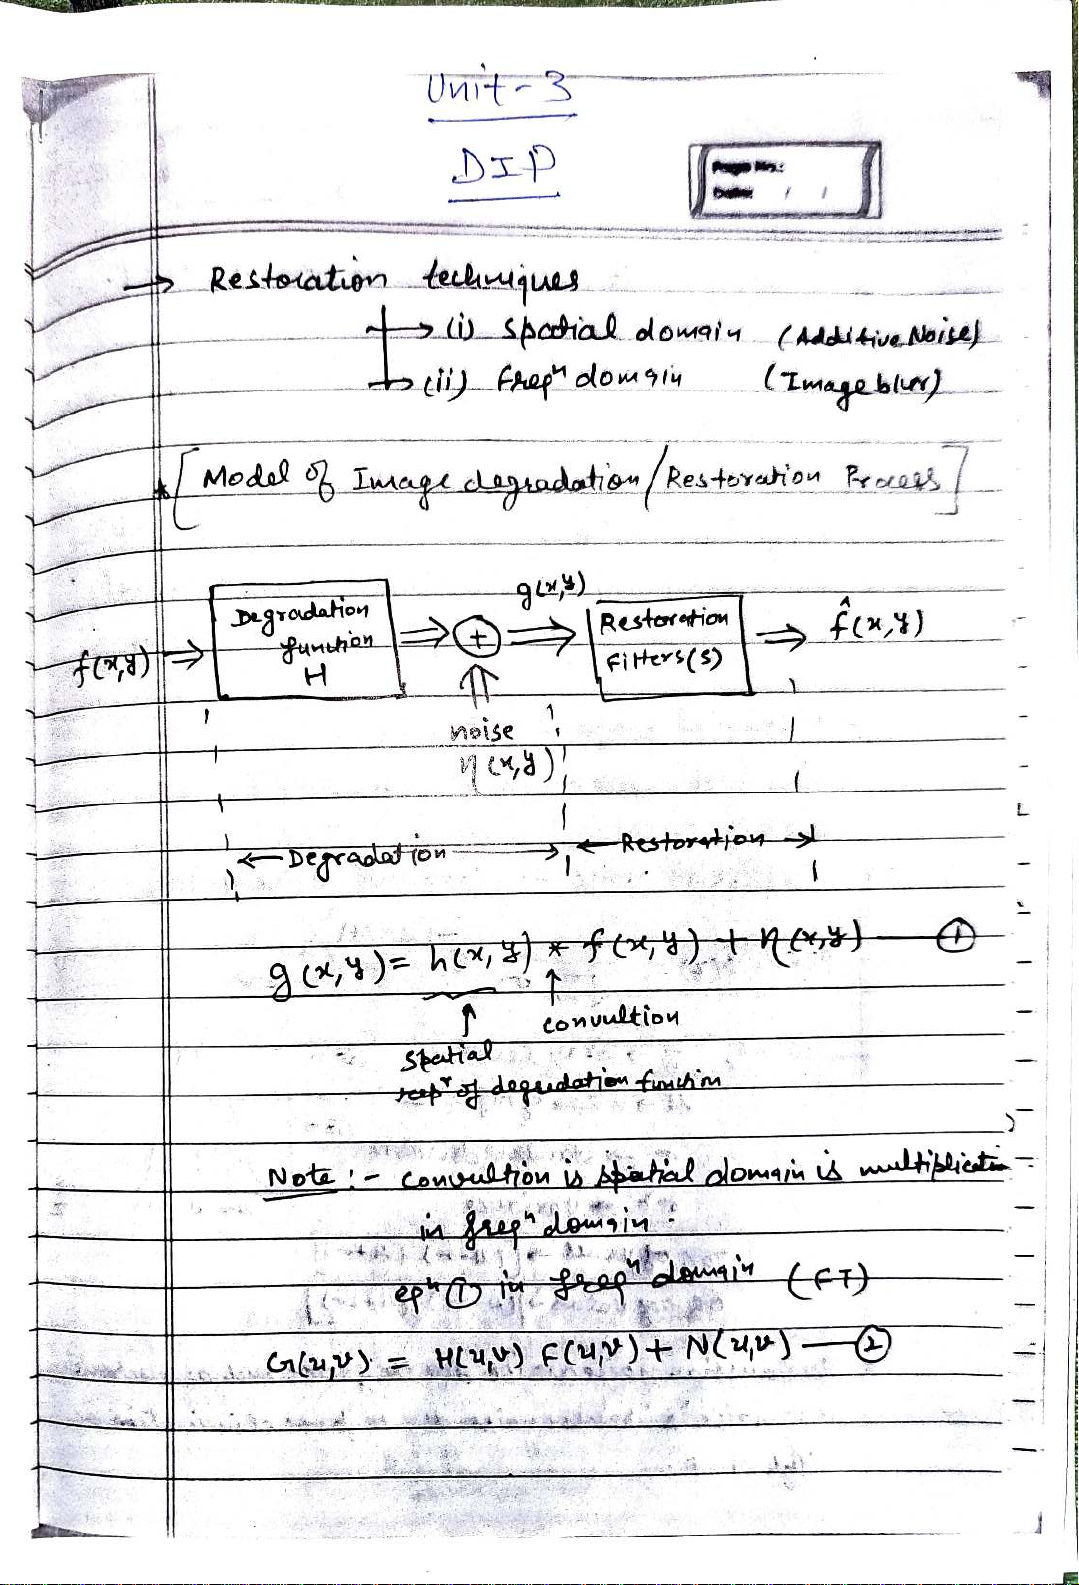 Unit-3
DIP
Page No.:
Date: / /
→ Restoration techniques
→ (i) Spatial domain (Additive Noise)
→ (ii) freqⁿ domain (Image blur)
* [Model of Image degradation / Restoration Process]
g(x,y)
f(x,y) ⇒ Degradation function H ⇒ + ⇒ Restoration Filters(s) ⇒ f̂(x,y)
noise
η(x,y)
← Degradation → ← Restoration →
g(x,y) = h(x,y) * f(x,y) + η(x,y) — ①
↑ convultion
↑ Spatial
repʳ of degradation function
Note :- convultion is spatial domain is multiplication
in freqⁿ domain.
eqⁿ ① in freqⁿ domain (FT)
G(u,v) = H(u,v) F(u,v) + N(u,v) — ②